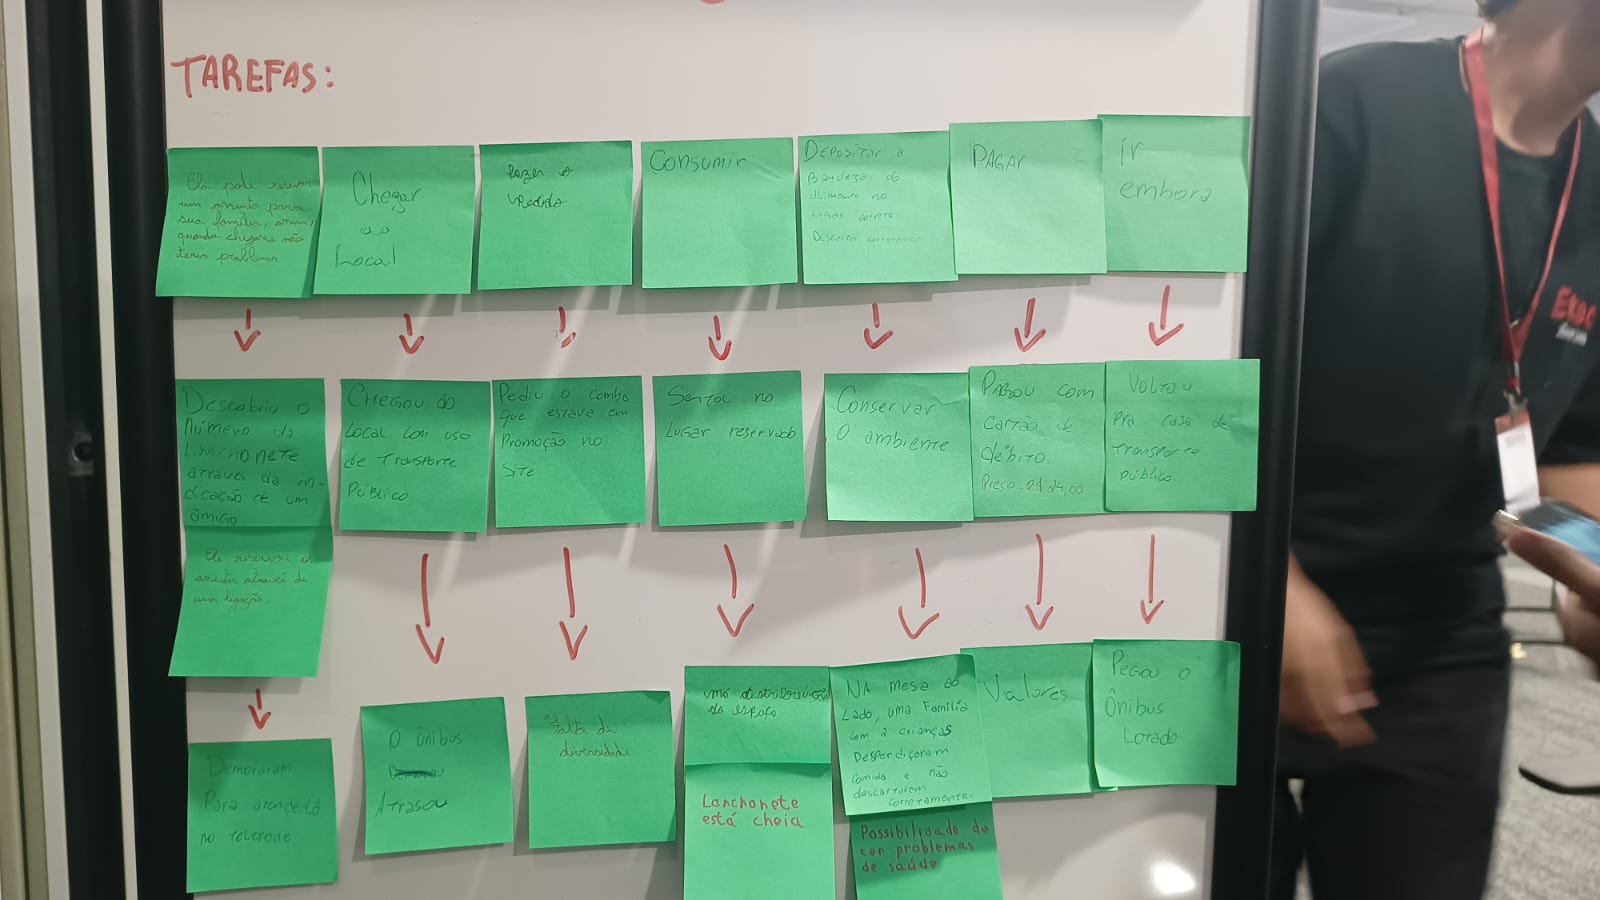 TAREFAS:
Ela pode reservar
um assento para
sua família, assim,
quando chegasse não
teria problemas
Chegar
ao
Local
fazer o
pedido
Consumir
Depositar a
Bandeja do
alimento no
Lugar correto
Descartar corretamente
PAGAR
ir
embora
Descobriu o
Número da
Lanchonete
através da in-
dicação de um
amigo
Ele reservou o
assento através de
uma ligação.
Chegou ao
Local com uso
de Transporte
Público
Pediu o combo
que estava em
Promoção no
Site
Sentou no
Lugar reservado
Conservar
O ambiente
Pagou com
Cartão de
débito.
Preço R$24,00
Voltou
Pra casa de
transporte
público
Demoraram
Para atendê-la
no telefone
O ônibus
Atrasou
Falta de
diversidade
má distribuição
do espaço
Lanchonete
está cheia
NA mesa ao
Lado, uma Família
com 2 crianças
Desperdiçaram
comida e não
descartaram
corretamente.
Possibilidade de
ter problemas
de saúde
Valores
Pegou o
Ônibus
Lotado